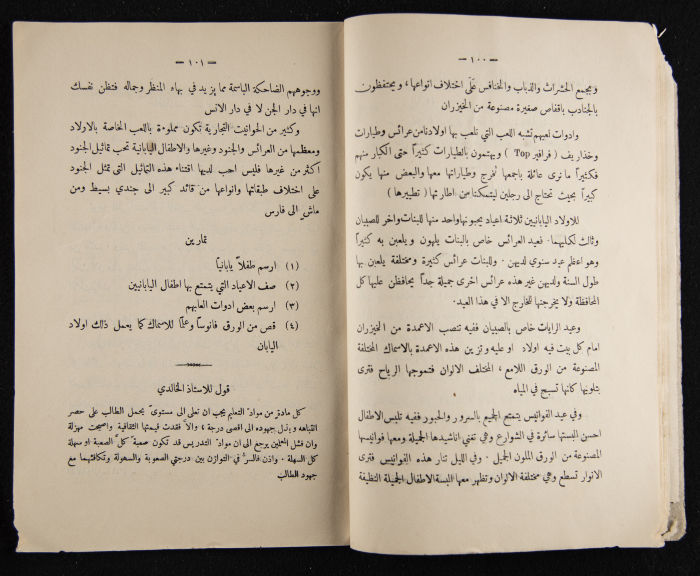 — ١٠٠ —
وبجمع الحشرات والذباب والخنافس على اختلاف انواعها ، ويحتفظون
بالجنادب باقفاص صغيرة مصنوعة من الخيزران
وادوات لعبهم تشبه اللعب التي يلعب بها اولادنا من عرائس وطيارات
وخذاريف ( فرافير Top ) ويهتمون بالطيارات كثيراً حتى الكبار منهم
فكثيراً ما نرى عائلة باجمعها تخرج وطياراتها معها والبعض منها يكون
كبيراً بحيث تحتاج الى رجلين ليتمكنا من اطارتها ( تطييرها )
للاولاد اليابانيين ثلاثة اعياد يحبونها واحد منها للبنات وآخر للصبيان
وثالث لكليهما . فعيد العرائس خاص بالبنات يلهون ويلعبن به كثيراً
وهو اعظم عيد سنوي لديهن . وللبنات عرائس كثيرة ومختلفة يلعبن بها
طول السنة ولديهن غير هذه عرائس اخرى جميلة جداً يحافظن عليها كل
المحافظة ولا يخرجنها للخارج الا في هذا العيد .
وعيد الرايات خاص بالصبيان ففيه تنصب الاعمدة من الخيزران
امام كل بيت فيه اولاد او عليه وتزين هذه الاعمدة بالاسماك المختلفة
المصنوعة من الورق اللامع ، المختلف الالوان فتموجها الرياح فترى
بتلويها كانها تسبح في المياه
وفي عيد الفوانيس يتمتع الجميع بالسرور والحبور ففيه تلبس الاطفال
احسن البستها سائرة في الشوارع وهي تغني اناشيدها الجميلة ومعها فوانيسها
المصنوعة من الورق الملون الجميل . وفي الليل تنار هذه الفوانيس فترى
الانوار تسطع وهي مختلفة الالوان وتظهر معها البسة الاطفال الجميلة النظيفة
— ١٠١ —
ووجوههم الضاحكة الباسمة مما يزيد في بهاء المنظر وجماله فتظن نفسك
انها في دار الجن لا في دار الانس
وكثير من الحوانيت التجارية تكون مملوءة باللعب الخاصة بالاولاد
ومعظمها من العرائس والجنود وغيرها والاطفال اليابانية تحب تماثيل الجنود
اكثر من غيرها فليس احب لديها اقتناء هذه التماثيل التي تمثل الجنود
على اختلاف طبقاتها وانواعها من قائد كبير الى جندي بسيط ومن
ماش الى فارس
تمارين
(١) ارسم طفلاً يابانياً
(٢) صف الاعياد التي يتمتع بها اطفال اليابانيين
(٣) ارسم بعض ادوات العابهم
(٤) قص من الورق فانوساً وعلماً للاسماك كما يعمل ذلك اولاد
اليابان
قول للاستاذ الخالدي
كل مادة من مواد التعليم يجب ان تعلى الى مستوى يحمل الطالب على حصر
انتباهه وبذل جهوده الى اقصى درجة ؛ والا فقدت قيمتها الثقافية واصبحت مهزلة
وان فشل المعلمين يرجع الى ان مواد التدريس قد تكون صعبة كل الصعبة او سهلة
كل السهلة . واذن فالسر في التوازن بين درجتي الصعوبة والسهولة وتكافئهما مع
جهود الطالب